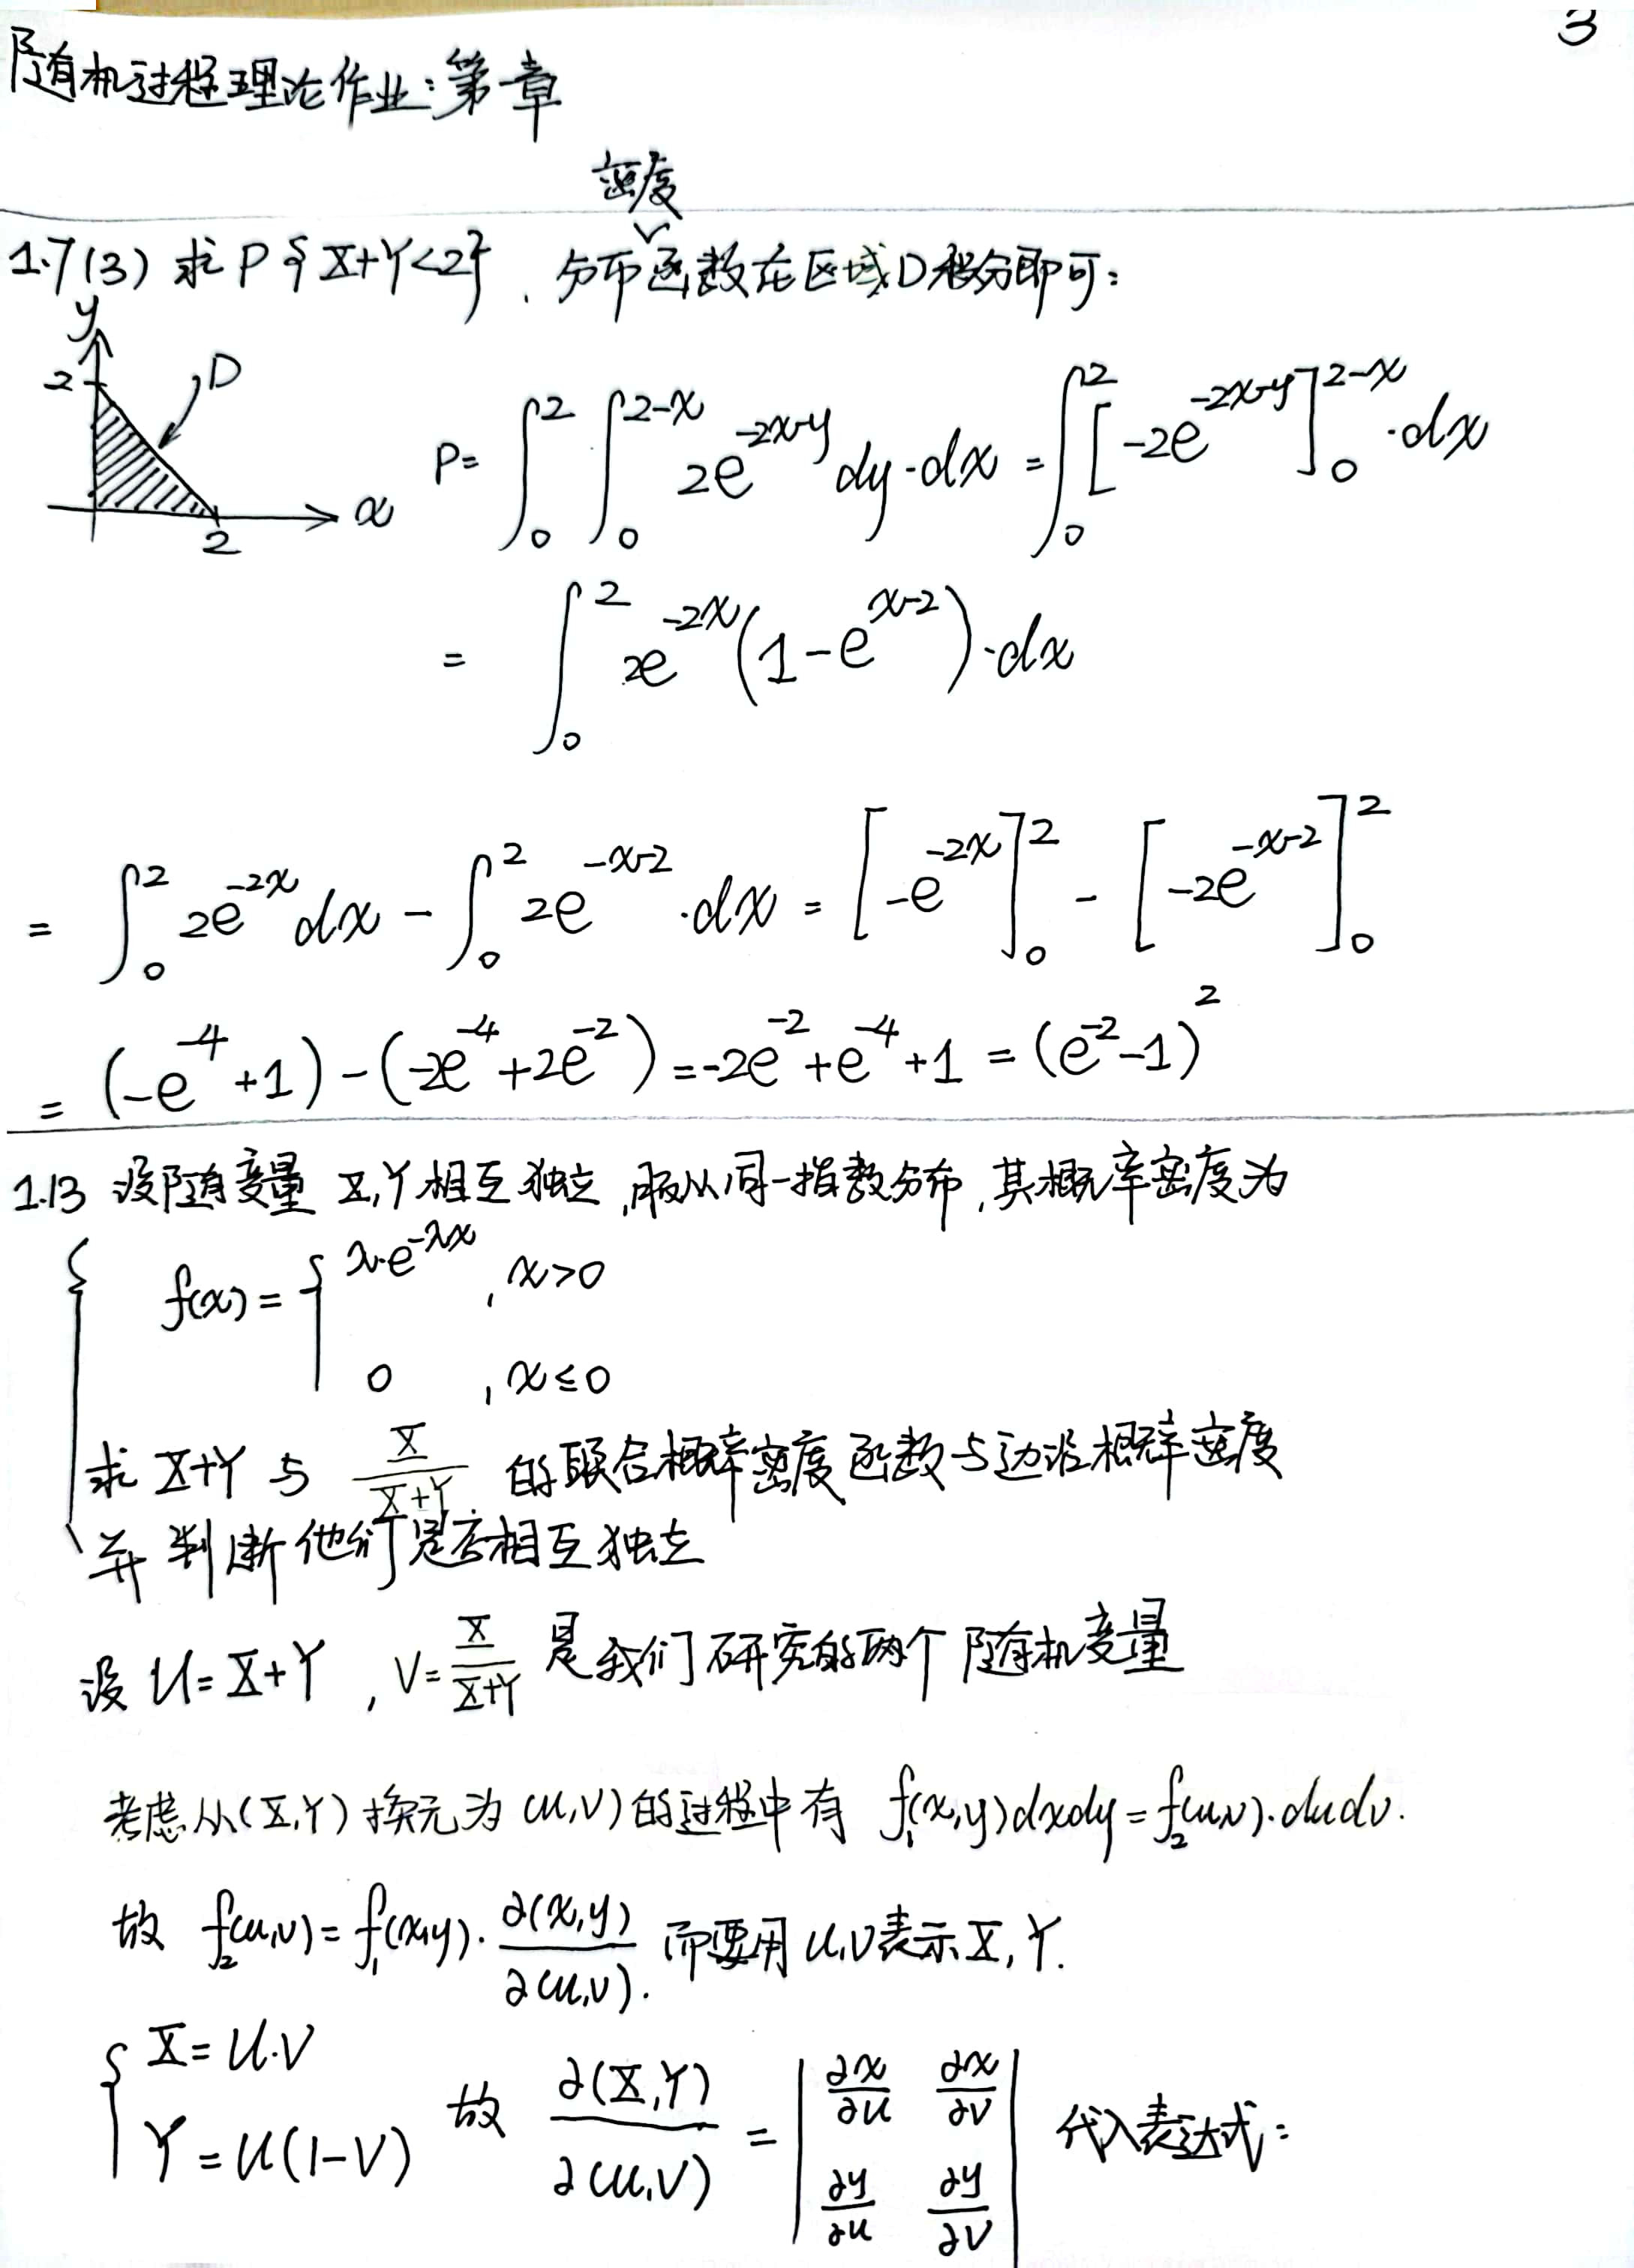 3
随机过程理论作业:第一章
密度
1.7(3) 求 P{X+Y<2}, 分布函数在区域D积分即可:
y
2
D
x
2
P= ∫₀² ∫₀^{2-x} 2e^{-2x-y} dy·dx = ∫₀² [-2e^{-2x-y}]₀^{2-x}·dx
= ∫₀² 2e^{-2x}(1-e^{x-2})·dx
= ∫₀² 2e^{-2x}dx - ∫₀² 2e^{-x-2}·dx = [-e^{-2x}]₀² - [-2e^{-x-2}]₀²
= (-e^{-4}+1)-(-2e^{-4}+2e^{-2}) = -2e^{-2}+e^{-4}+1 = (e^{-2}-1)²
1.13 设随变量 X,Y相互独立,服从同一指数分布,其概率密度为
f(x)= { λ·e^{-λx}, x>0
0 , x≤0
求 X+Y 与 X/(X+Y) 的联合概率密度函数与边沿概率密度
并判断他们是否相互独立
设 U=X+Y , V=X/(X+Y) 是我们研究的两个随机变量
考虑从(X,Y)换元为(U,V)的过程中有 f₁(x,y)dxdy=f₂(u,v)·dudv.
故 f₂(u,v)=f₁(x,y)·∂(x,y)/∂(u,v). 而要用U,V表示X,Y.
{ X=U·V
Y=U(1-V) 故 ∂(X,Y)/∂(U,V) = | ∂x/∂u ∂x/∂v | 代入表达式:
| ∂y/∂u ∂y/∂v |